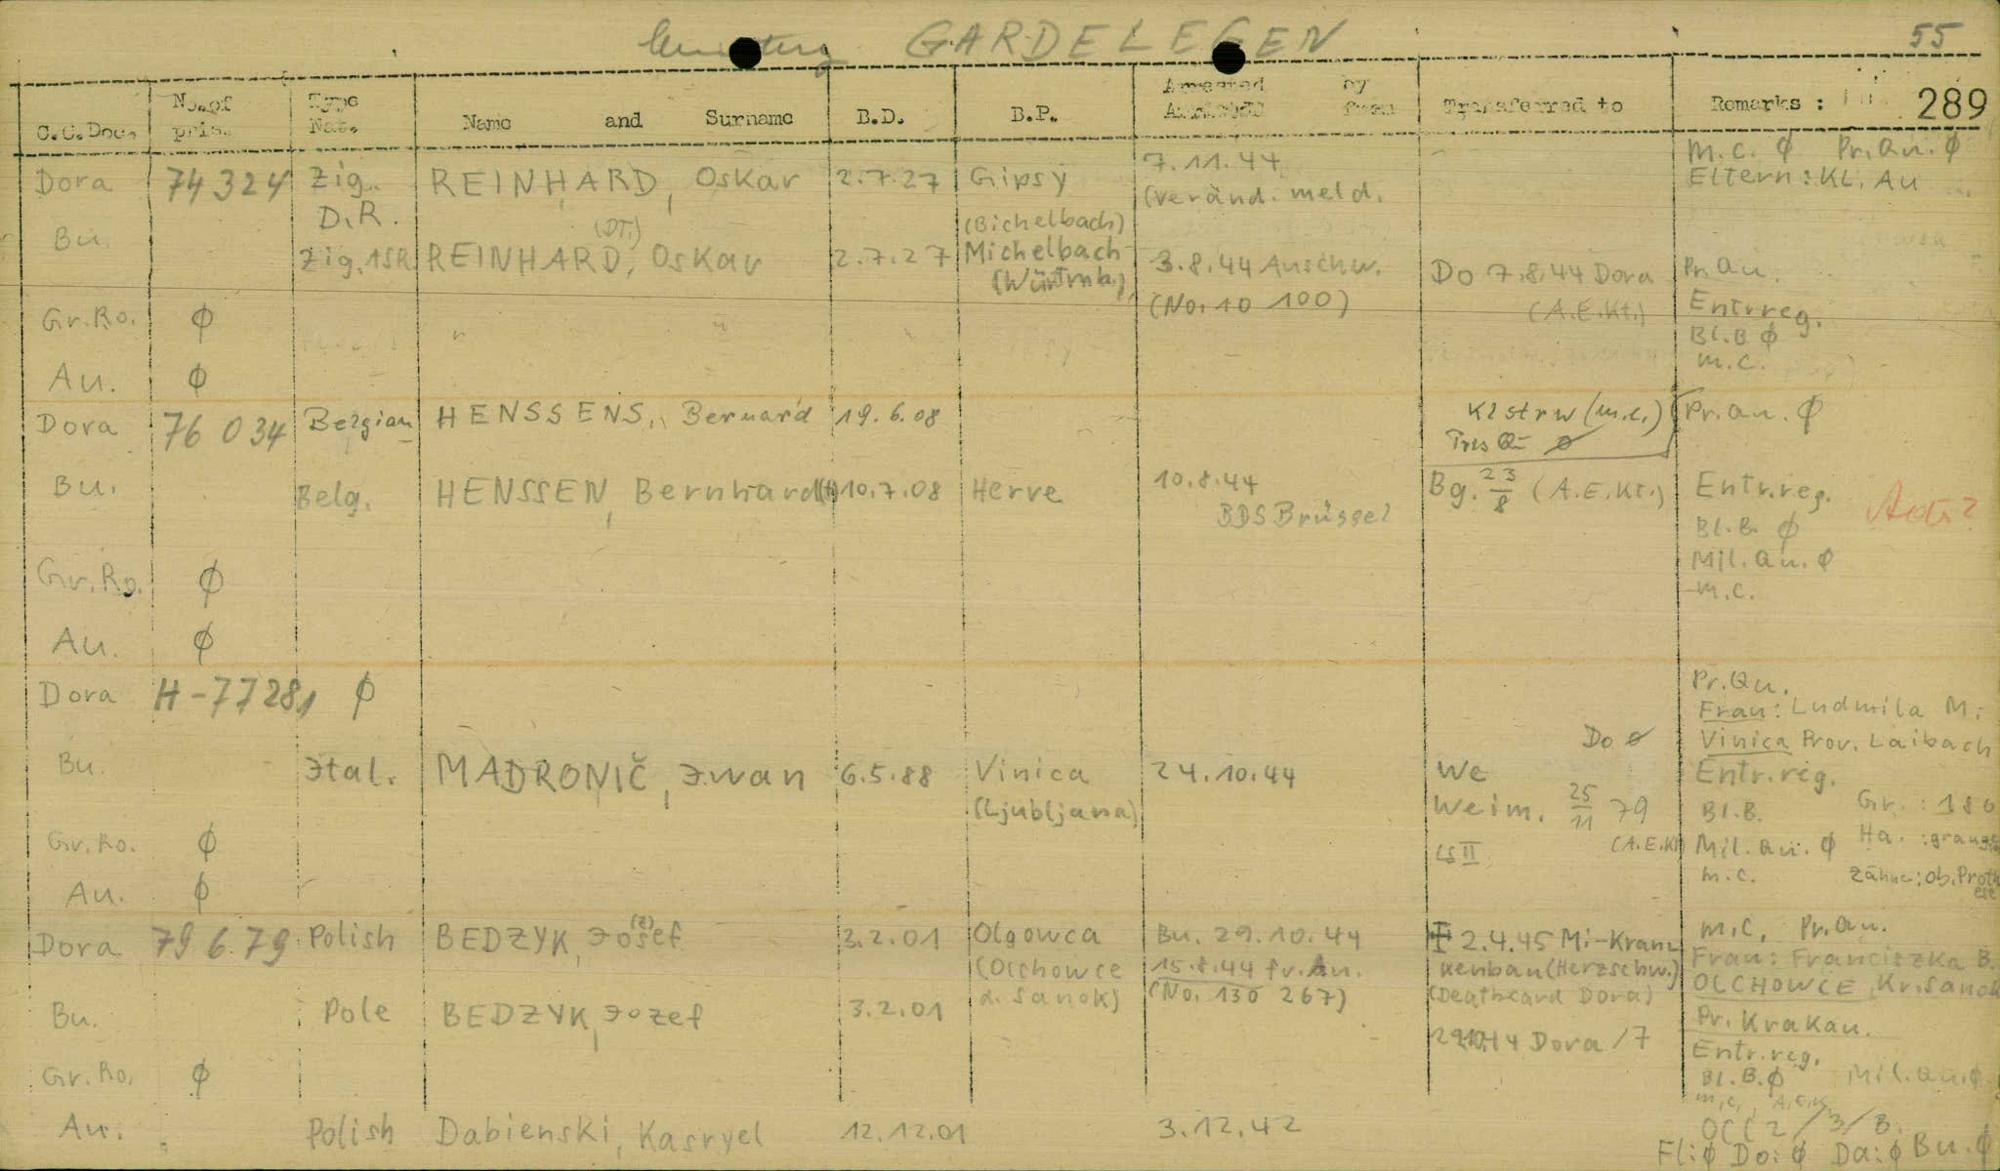 GARDELEGEN 55
289
C.C.Doc. No. of pris. Type Nat. Name and Surname B.D. B.P. Arrested by Transferred to Remarks :
Dora 74324 Zig. D.R. REINHARD, Oskar 2.7.27 Gipsy 7.11.44 (veränd. meld. M.C. Ø Pr.Qu. Ø
Eltern: KL. Au
Bu. Zig. ASR REINHARD, Oskar (DT.) 2.7.27 (Bichelbach) Michelbach (Württmb.) 3.8.44 Auschw. (No. 10 100) Do 7.8.44 Dora (A.E.Kt.) Pr. Qu.
Entr.reg.
Bl.B Ø
m.c.
Gr.Ro. Ø
Au. Ø
Dora 76 034 Belgian HENSSENS, Bernard 19.6.08 Klstrw (m.c.) Pr.Qu. Ø
Bu. Belg. HENSSEN, Bernhard(t) 10.7.08 Herve 10.8.44 BDS Brüssel Bg. 23/8 (A.E.Kt.) Entr.reg.
Bl.B. Ø
Mil.Qu. Ø
m.c.
Gr.Ro. Ø
Au. Ø
Dora H-77281 Ø Pr.Qu.
Frau: Ludmila M.
Vinica Prov. Laibach
Do Ø
Bu. Ital. MADRONIČ, Iwan 6.5.88 Vinica (Ljubljana) 24.10.44 We Weim. 25/11 79 (A.E.Kt) Entr.reg.
LS II
Bl.B. Gr. : 180
Mil.Qu. Ø Ha. :
m.c. Zähne: ob. Prothese
Gr.Ro. Ø
Au. Ø
Dora 79679 Polish BEDZYK, Josef (z) 3.2.01 Olgowca (Olchowce d. Sanok) Bu. 29.10.44 15.8.44 fr. Au. (No. 130 267) 2.4.45 Mi-Krankenbau (Herzschw.) (Deathcard Dora) m.c. Pr.Qu.
Frau: Franciszka B.
OLCHOWCE, Kr. Sanok
Pr. Krakau.
Bu. Pole BEDZYK, Jozef 3.2.01 Dora /7
Entr.reg.
Bl.B. Ø Mil.Qu. Ø
Gr.Ro. Ø
m.c., A.E.K.
Au. Polish Dabienski, Kasryel 12.12.01 3.12.42 OCC 2/3/B.
Fl: Ø Do: Ø Da: Ø Bu. Ø